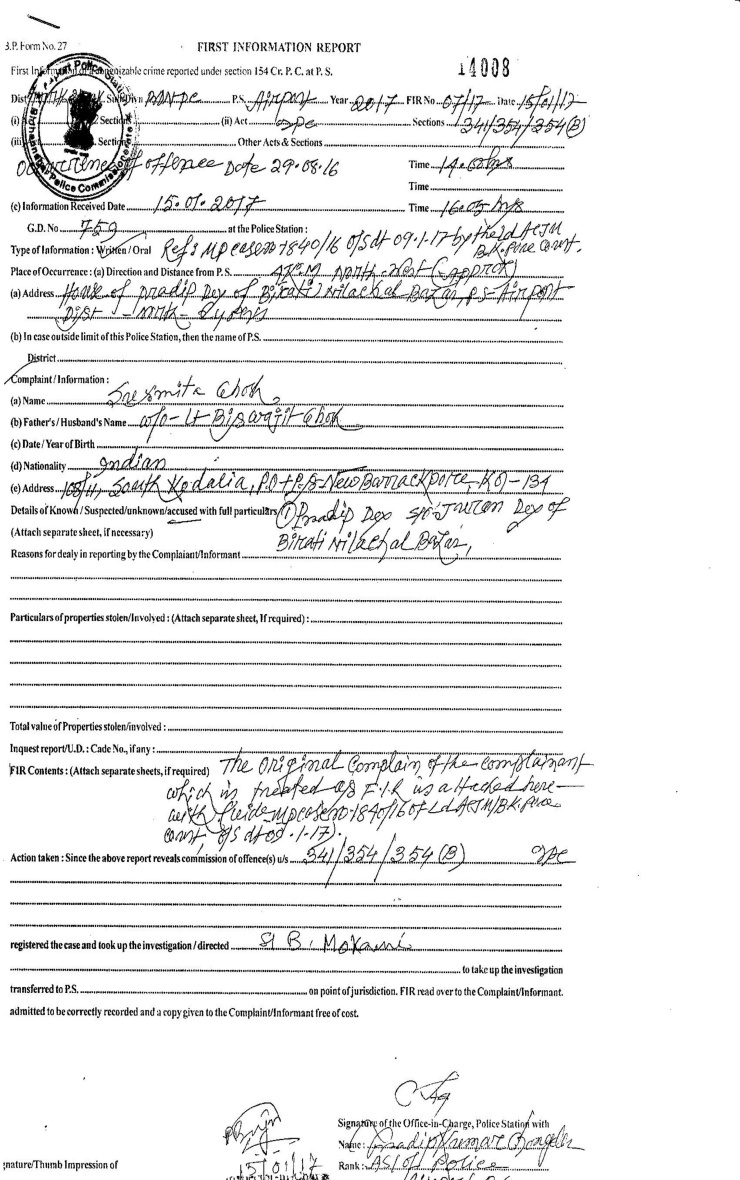 B.P. Form No. 27
FIRST INFORMATION REPORT
14008
First Information of a cognizable crime reported under section 154 Cr. P. C. at P. S.
Dist. Sub-Divn P.S. Airport Year 2017 FIR No 07/17 Date 15/01/17
(i) Sections (ii) Act IPC Sections 341/354/354(B)
(iii) Sections Other Acts & Sections
Occurrence of offence Date 29.08.16 Time 14.00 hrs
Time
(c) Information Received Date 15.01.2017 Time 16.05 hrs
G.D. No 759 at the Police Station :
Type of Information : Written / Oral Ref: MP case no 1840/16 dt 09.1.17 by the Ld ACJM B.K. Pore Court.
Place of Occurrence : (a) Direction and Distance from P.S. North-West (Approx)
(a) Address House of Pradip Dey of Birati Nilachal Bazar, P.S- Airport
Dist - North-
(b) In case outside limit of this Police Station, then the name of P.S.
District
Complaint / Information :
(a) Name Susmita Ghosh
(b) Father's / Husband's Name w/o- Lt Biswajit Ghosh
(c) Date / Year of Birth
(d) Nationality Indian
(e) Address 108/11, South Kodalia, P.O + P.S- New Barrackpore, Kol-134
Details of Known / Suspected/unknown/accused with full particulars (1) Pradip Dey s/o- Dey of
(Attach separate sheet, if necessary) Birati Nilachal Bazar,
Reasons for dealy in reporting by the Complaiant/Informant
Particulars of properties stolen/Involved : (Attach separate sheet, If required) :
Total value of Properties stolen/involved :
Inquest report/U.D. : Cade No., if any :
FIR Contents : (Attach separate sheets, if required) The original Complain of the complainant
which is treated as F.I.R is attached here-
with vide MP case no-1840/16 of Ld ACJM/B.K. Pore
Court, dt 09.1-17).
Action taken : Since the above report reveals commission of offence(s) u/s 341/354/354(B) IPC
registered the case and took up the investigation / directed SI B.
to take up the investigation
transferred to P.S. on point of jurisdiction. FIR read over to the Complaint/Informant.
admitted to be correctly recorded and a copy given to the Complaint/Informant free of cost.
Signature of the Office-in-Charge, Police Station with
Name: Pradip Kumar
Rank: ASI of Police
15/01/17
nature/Thumb Impression of